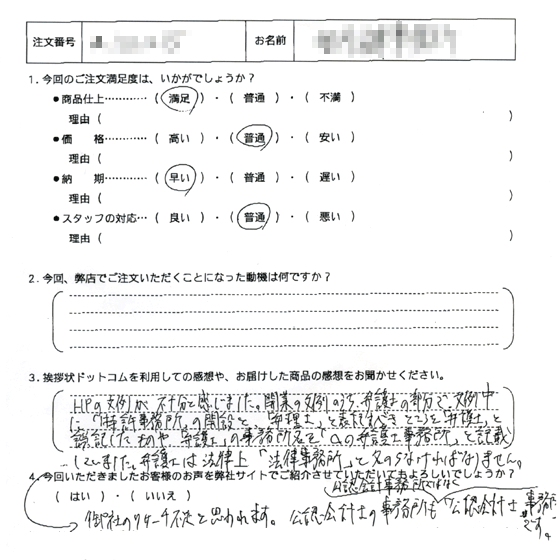 注文番号 お名前
1. 今回のご注文満足度は、いかがでしょうか?
●商品仕上………… ( 満足 ) ・ ( 普通 ) ・ ( 不満 )
理由 ( )
●価 格………… ( 高い ) ・ ( 普通 ) ・ ( 安い )
理由 ( )
●納 期………… ( 早い ) ・ ( 普通 ) ・ ( 遅い )
理由 ( )
●スタッフの対応… ( 良い ) ・ ( 普通 ) ・ ( 悪い )
理由 ( )
2. 今回、弊店でご注文いただくことになった動機は何ですか?
3. 挨拶状ドットコムを利用しての感想や、お届けした商品の感想をお聞かせください。
HPの文例が不十分と感じました。開業の文例のうち弁護士の部分で文例中
に「特許事務所」の開設と、「弁理士」と表記すべきところを「弁護士」と
誤記したものや、弁護士の事務所名を「〇〇弁護士事務所」と記載
していました。弁護士は法律上「法律事務所」と名のらなければなりません。
4. 今回いただきましたお客様のお声を弊社サイトでご紹介させていただいてもよろしいでしょうか?
( はい ) ・ ( いいえ ) 会計事務所ではなく
御社のリサーチ不足と思われます。公認会計士の事務所も「公認会計士事務所」
です。